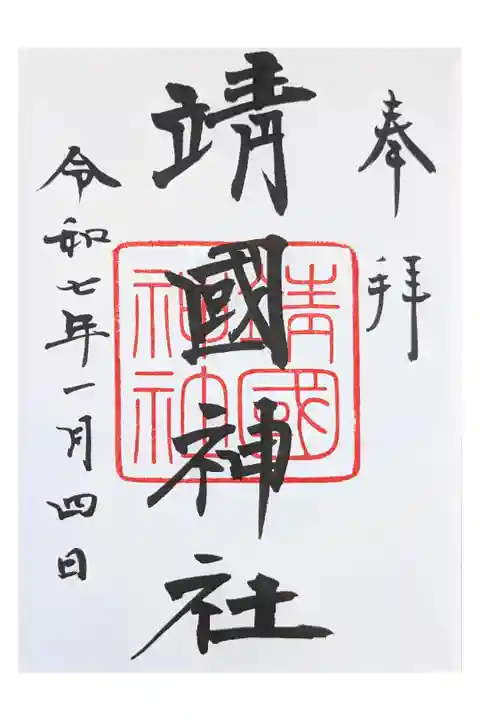 奉拝
靖國神社
靖國
神社
令和七年一月四日